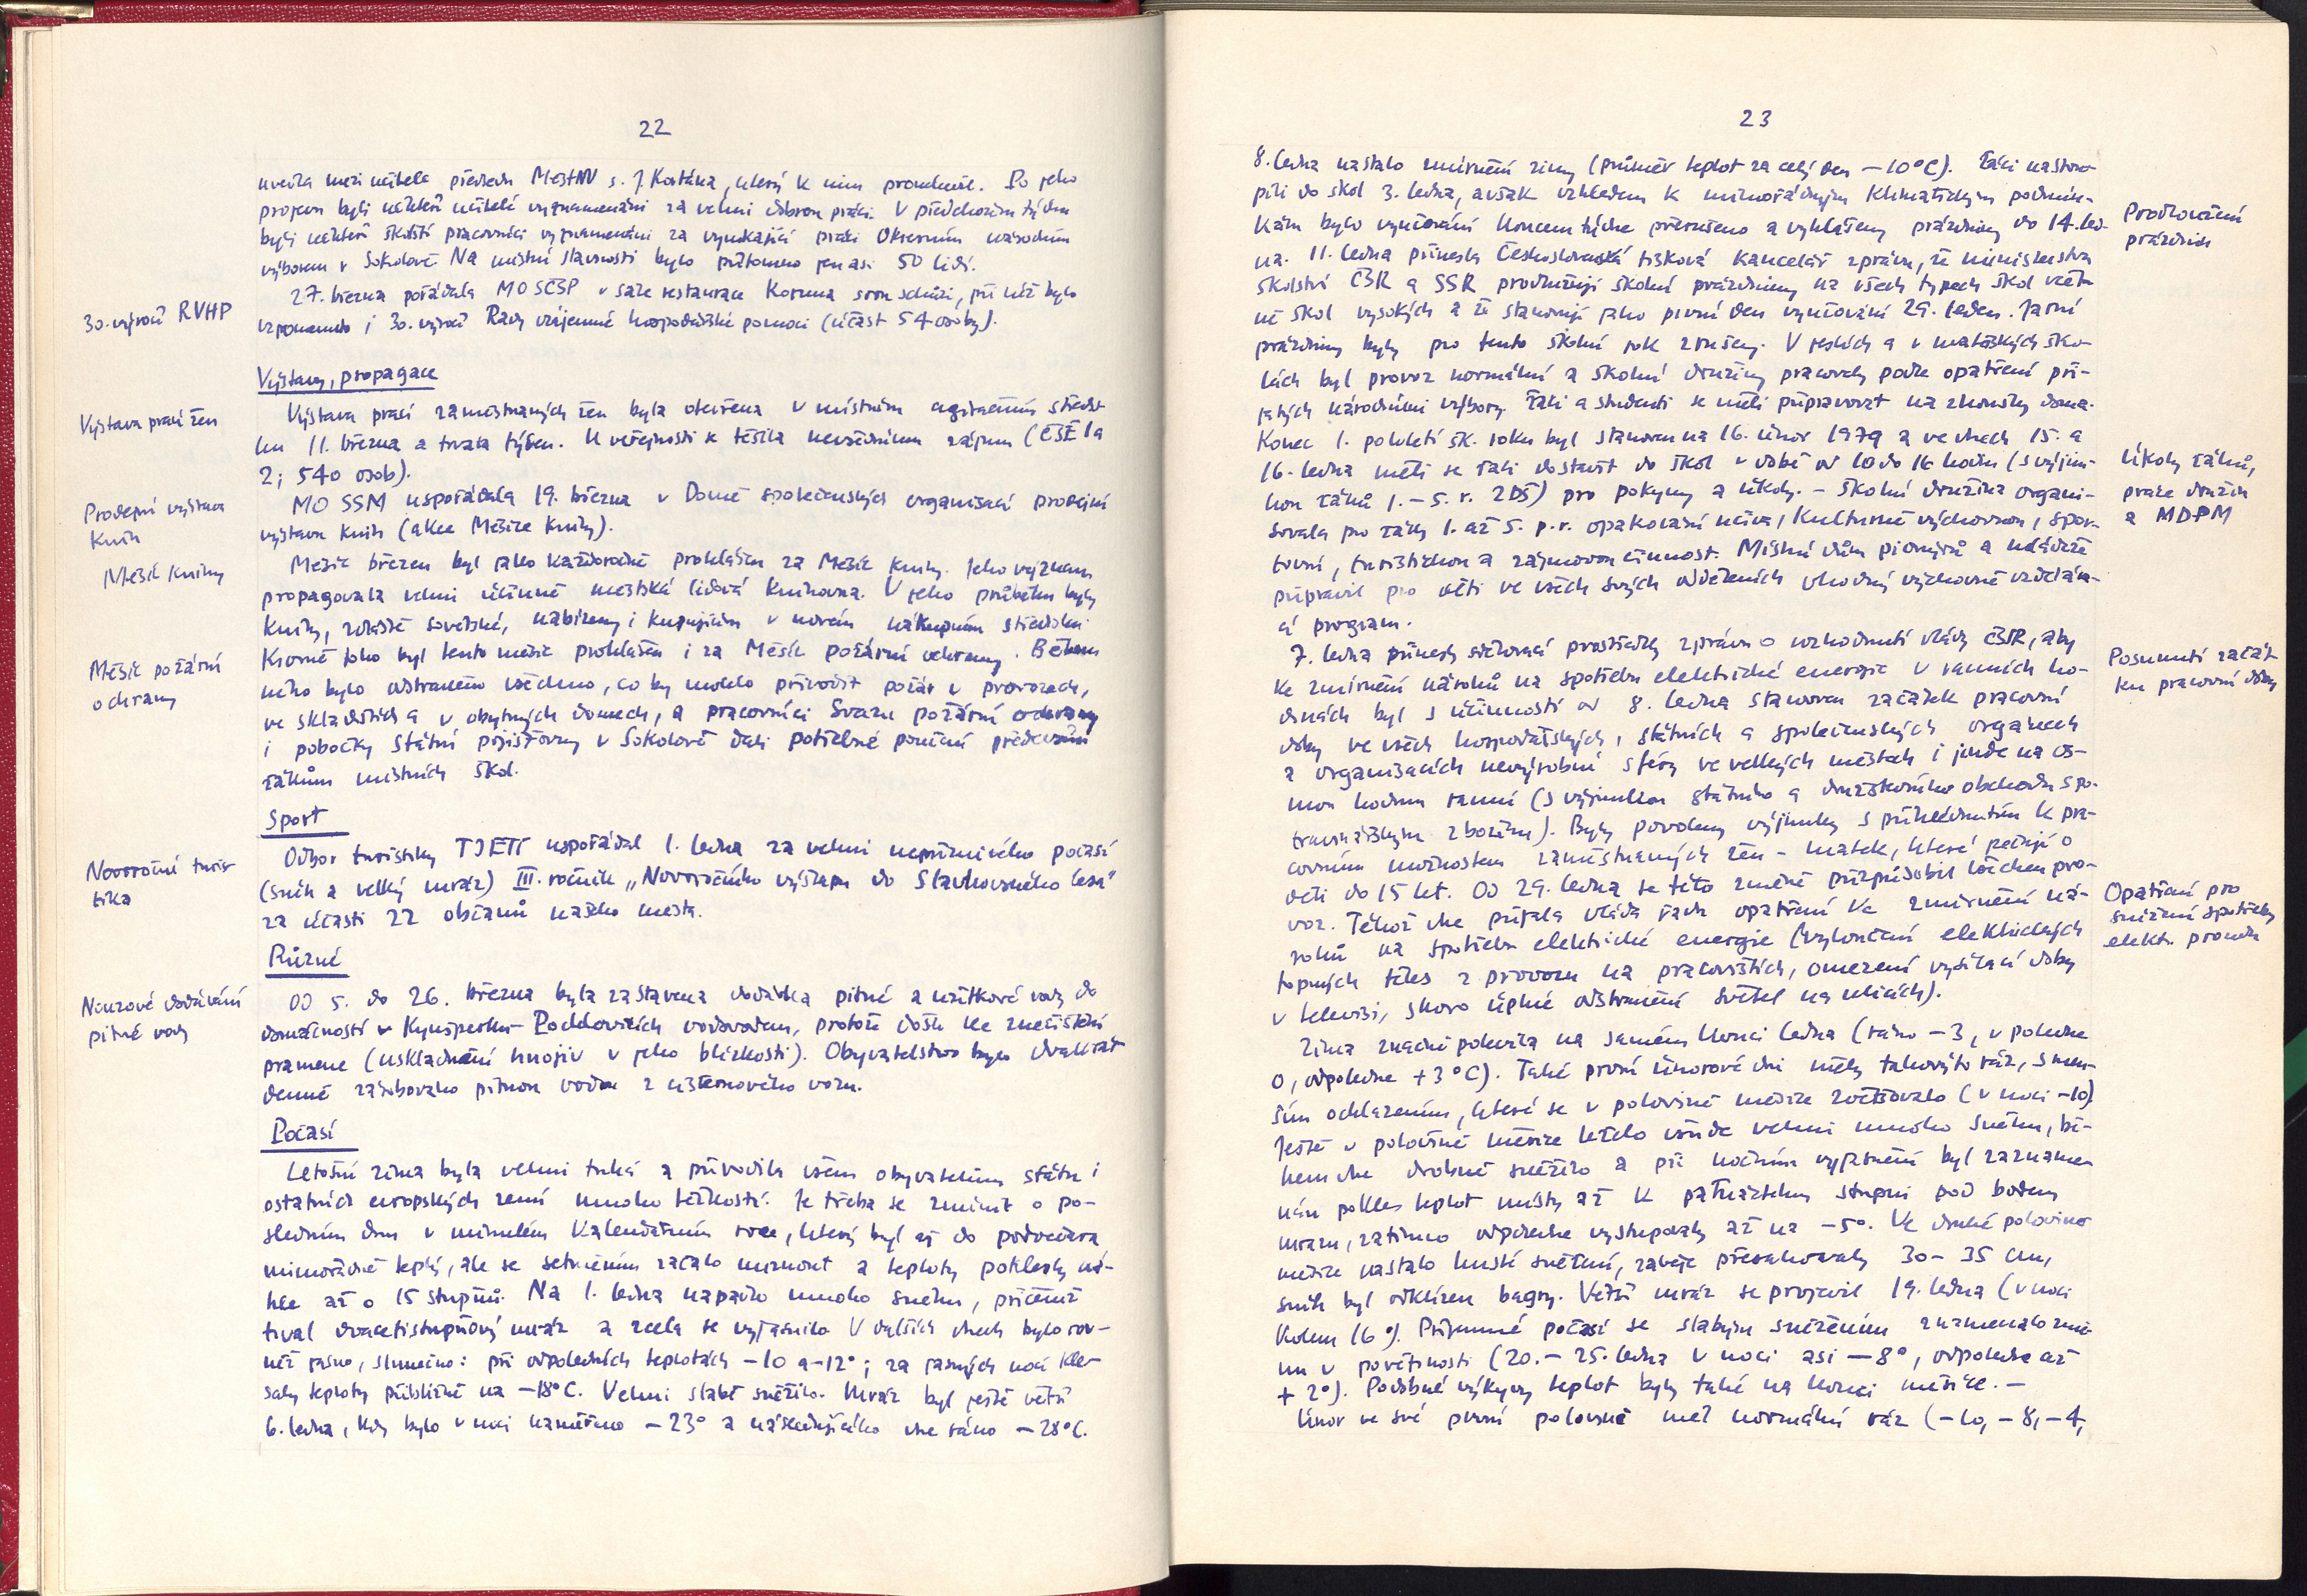 22
uvedla mezi učitele předsedu MěstNV s. J. Kortána, který k nim promluvil. Po jeho
projevu byli někteří učitelé vyznamenáni za velmi dobrou práci. V předchozím týdnu
byli někteří školští pracovníci vyznamenáni za vynikající práci Okresním národním
výborem v Sokolově. Na místní slavnosti bylo přítomno jen asi 50 lidí.
27. března pořádala MO SČSP v sále restaurace Koruna svou schůzi, při níž bylo
30. výročí RVHP
vzpomenuto i 30. výročí Rady vzájemné hospodářské pomoci (účast 54 osoby).
Výstavy, propagace
Výstava prací žen
Výstava prací zaměstnaných žen byla otevřena v místním agitačním středis-
ku 11. března a trvala týden. U veřejnosti se těšila nevšednímu zájmu (ČSŽ 1 a
2; 540 osob).
Prodejní výstava
knih
MO SSM uspořádala 19. března v Domě společenských organisací prodejní
výstavu knih (akce Měsíce knihy).
Měsíc knihy
Měsíc březen byl jako každoročně prohlášen za Měsíc knihy. Jeho význam
propagovala velmi účinně městská lidová knihovna. V jeho průběhu byly
knihy, zvláště sovětské, nabízeny i kupujícím v novém nákupním středisku.
Měsíc požární
ochrany
Kromě toho byl tento měsíc prohlášen i za Měsíc požární ochrany. Během
něho bylo odstraněno všechno, co by mohlo přivodit požár v provozech,
ve skladištích a v obytných domech, a pracovníci Svazu požární ochrany
i pobočky Státní pojišťovny v Sokolově dali potřebné poučení především
žákům místních škol.
Sport
Novoroční turis-
tika
Odbor turistiky TJ ETI uspořádal 1. ledna za velmi nepříznivého počasí
(sníh a velký mráz) III. ročník „Novoročního výstupu do Slavkovského lesa"
za účasti 22 občanů našeho města.
Různé
Nouzové dodávání
pitné vody
Od 5. do 26. března byla zastavena dodávka pitné a užitkové vody do
domácností v Kynšperku-Podlesí vodovodem, protože došlo ke znečištění
pramene (uskladnění hnojiv v jeho blízkosti). Obyvatelstvo bylo dvakrát
denně zásobováno pitnou vodou z cisternového vozu.
Počasí
Letošní zima byla velmi tuhá a přivodila všem obyvatelům státu i
ostatních evropských zemí mnoho těžkostí. Je třeba se zmínit o po-
sledním dnu v minulém kalendářním roce, který byl až do podvečera
mimořádně teplý, ale se setměním začalo mrznout a teploty poklesly ná-
hle až o 15 stupňů. Na 1. ledna napadlo mnoho sněhu, přičemž
trval dvacetistupňový mráz a zcela se vyjasnilo. V dalších dnech bylo rov-
něž jasno, slunečno: při odpoledních teplotách -10 a -12°; za jasných nocí kle-
saly teploty přibližně na -18°C. Velmi slabě sněžilo. Mráz byl ještě větší
6. ledna, kdy bylo v noci naměřeno -23° a následujícího dne ráno -28°C.
23
8. ledna nastalo zmírnění zimy (průměr teplot za celý den -10°C). Žáci nastou-
pili do škol 3. ledna, avšak vzhledem k mimořádným klimatickým podmín-
Prodloužení
prázdnin
kám bylo vyučování koncem týdne přerušeno a vyhlášeny prázdniny do 14. led-
na. 11. ledna přinesla Československá tisková kancelář zprávu, že ministerstva
školství ČSR a SSR prodlužují školní prázdniny na všech typech škol včet-
ně škol vysokých a že stanovují jako první den vyučování 29. leden. Jarní
prázdniny byly pro tento školní rok zrušeny. V jeslích a v mateřských ško-
lách byl provoz normální a školní družiny pracovaly podle opatření při-
jatých národními výbory. Žáci a studenti se měli připravovat na zkoušky doma.
Konec 1. pololetí šk. roku byl stanoven na 16. únor 1979 a ve dnech 15. a
Úkoly žáků,
práce družin
a MDPM
16. ledna měli se žáci dostavit do škol v době od 10 do 16 hodin (s výjim-
kou žáků 1.-5. r. ZDŠ) pro pokyny a úkoly. - Školní družina organi-
sovala pro žáky 1. až 5. p. r. opakování učiva, kulturně výchovnou, spor-
tovní, turistickou a zájmovou činnost. Místní dům pionýrů a mládeže
připravil pro děti ve všech svých odděleních vhodný výchovně vzděláva-
cí program.
Posunutí začát-
ku pracovní doby
7. ledna přinesly sdělovací prostředky zprávu o rozhodnutí vlády ČSSR, aby
ke zmírnění nároků na spotřebu elektrické energie v ranních ho-
dinách byl s účinností od 8. ledna stanoven začátek pracovní
doby ve všech hospodářských, státních a společenských orgánech
a organisacích nevýrobní sféry ve velkých městech i jinde na os-
mou hodinu ranní (s výjimkou státního a družstevního obchodu s po-
travinářským zbožím). Byly povoleny výjimky s přihlédnutím k pra-
covním možnostem zaměstnaných žen - matek, které pečují o
děti do 15 let. Od 29. ledna se této změně přizpůsobil všechen pro-
Opatření pro
snížení spotřeby
elektr. proudu
voz. Téhož dne přijala vláda řadu opatření ke zmírnění ná-
roků na spotřebu elektrické energie (vyloučení elektrických
topných těles z provozu na pracovištích, omezení vysílací doby
v televisi, skoro úplné odstranění světel na ulicích).
Zima značně polevila na samém konci ledna (ráno -3, v poledne
0, odpoledne +3°C). Také první únorové dni měly takovýto ráz, s men-
ším ochlazením, které se v polovině měsíce zvětšovalo (v noci -10).
Ještě v polovině měsíce leželo všude velmi mnoho sněhu, bě-
hem dne drobně sněžilo a při nočním vyjasnění byl zazname-
nán pokles teplot místy až k patnáctému stupni pod bodem
mrazu, zatímco odpoledne vystupovaly až na -5°. Ve druhé polovině
měsíce nastalo husté sněžení, závěje přesahovaly 30-35 cm,
sníh byl odklízen bagry. Větší mráz se projevil 19. ledna (v noci
kolem 16°). Příjemné počasí se slabým sněžením znamenalo změ-
nu v povětrnosti (20.-25. ledna v noci asi -8°, odpoledne až
+2°). Podobné výkyvy teplot byly také na konci měsíce. -
Únor ve své první polovině měl normální ráz (-10, -8, -4,